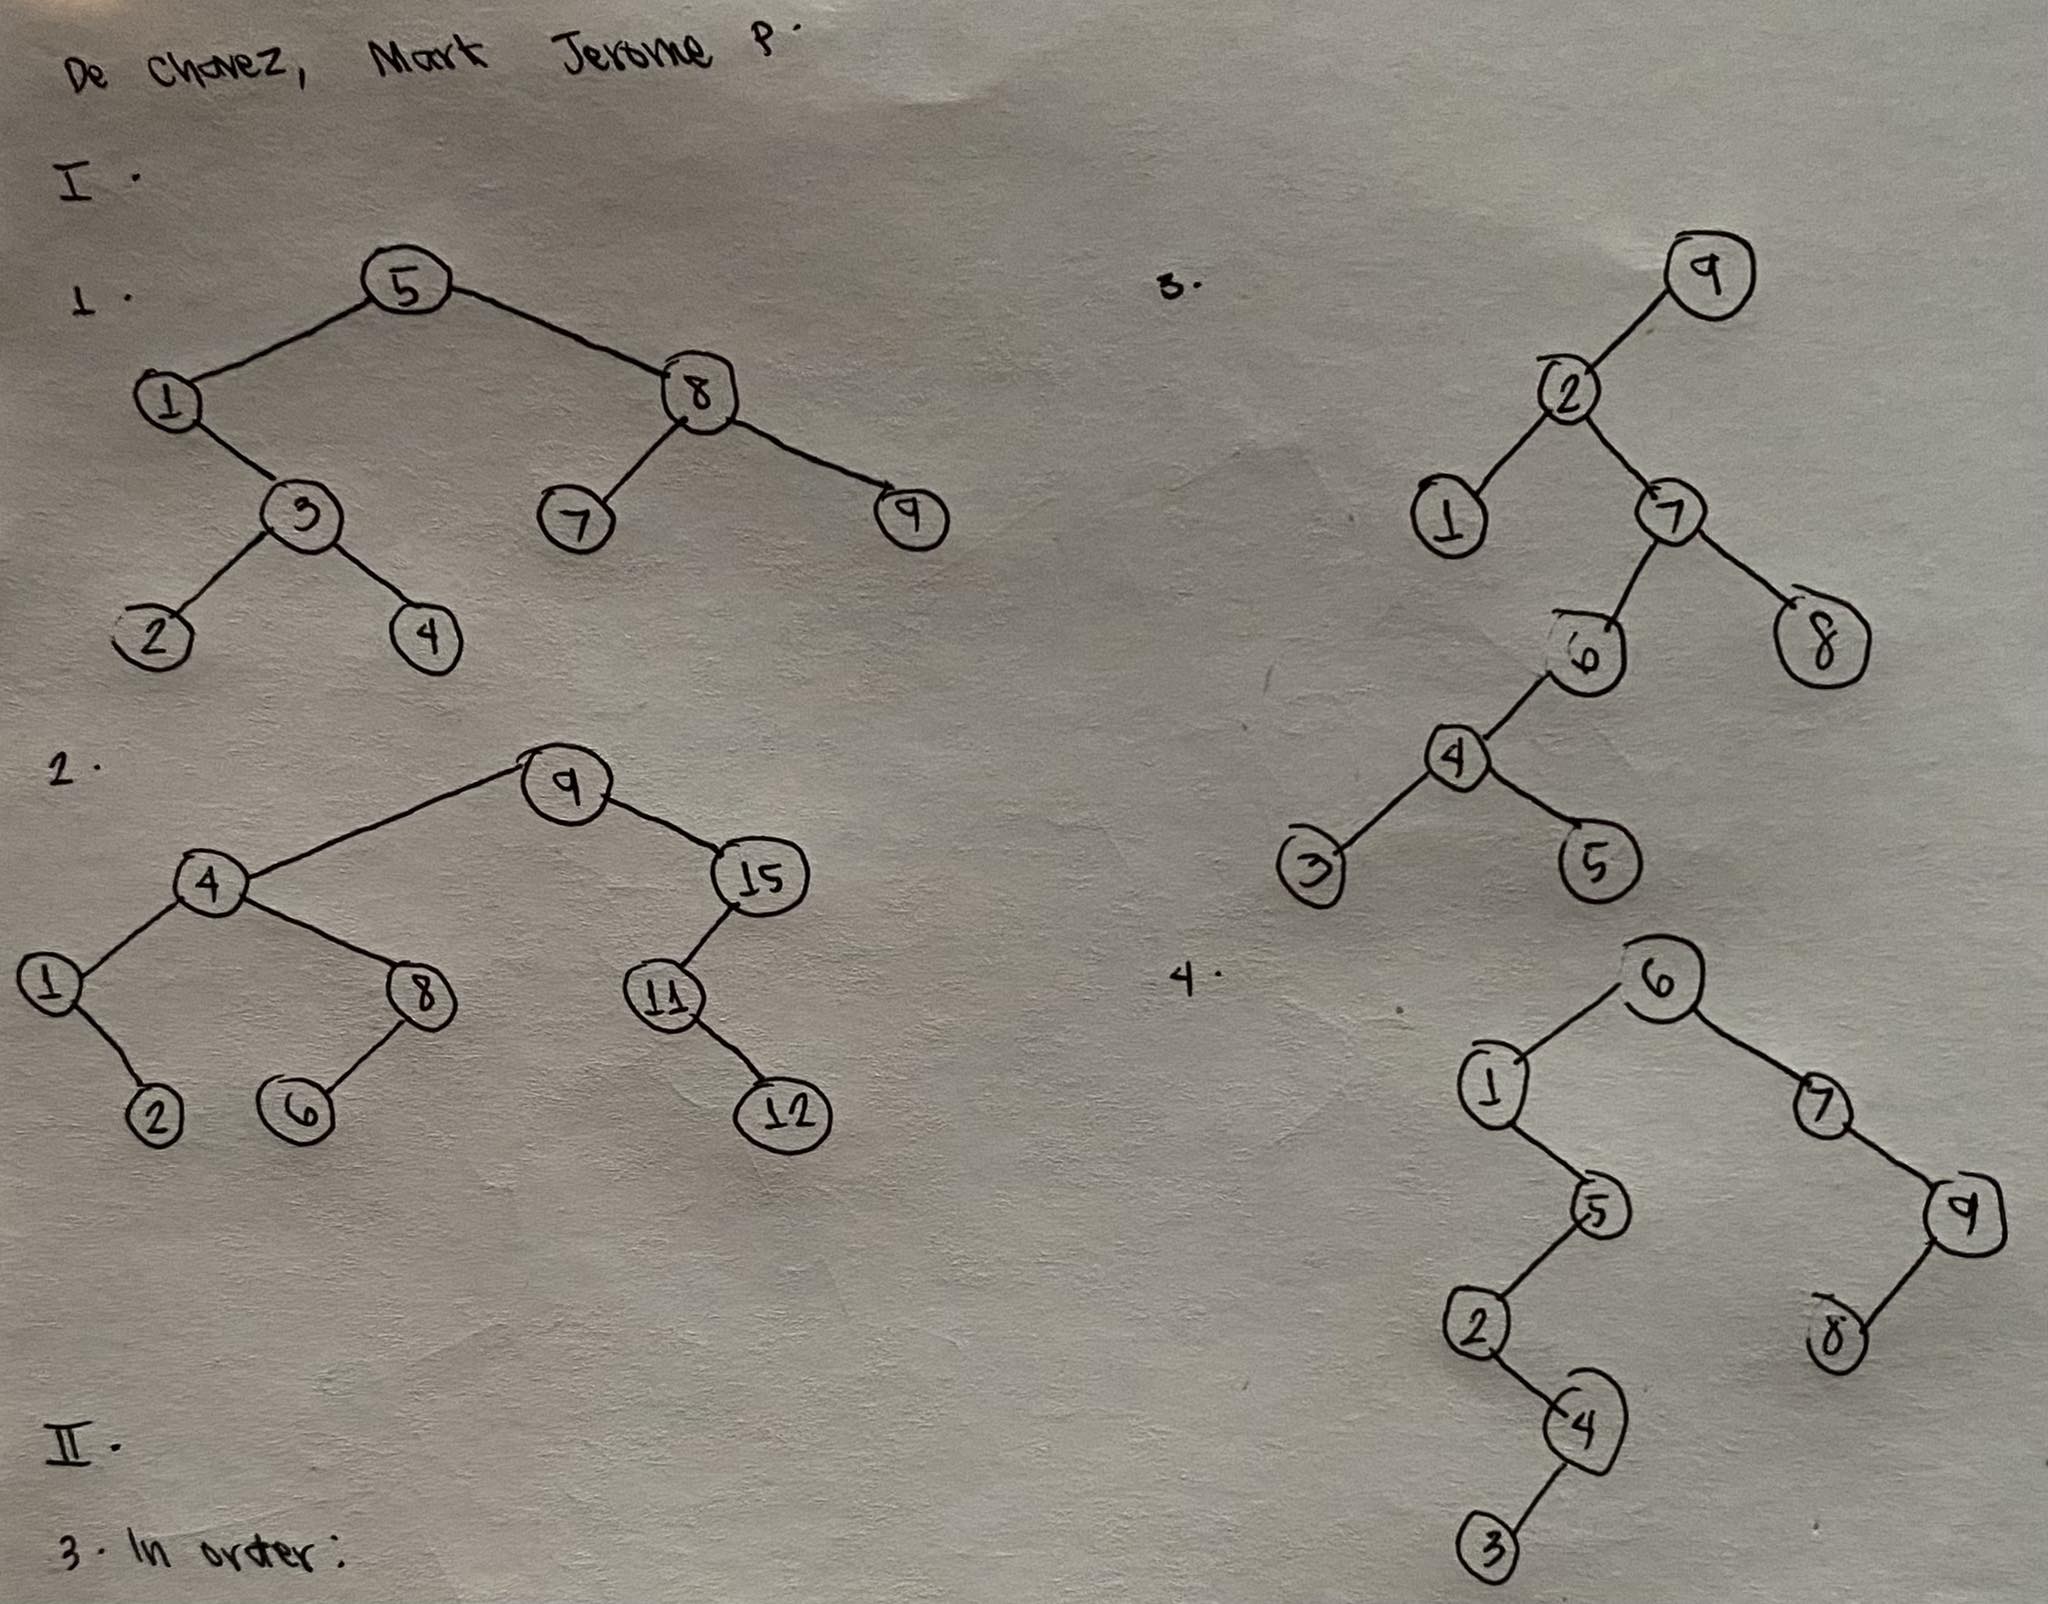 De Chavez, Mark Jerome P.
I.
1.
5
1 8
3 7 9
2 4
2.
9
4 15
1 8 11
2 6 12
3.
9
2
1 7
6 8
4
3 5
4.
6
1 7
5 9
2 8
4
3
II.
3. In order: